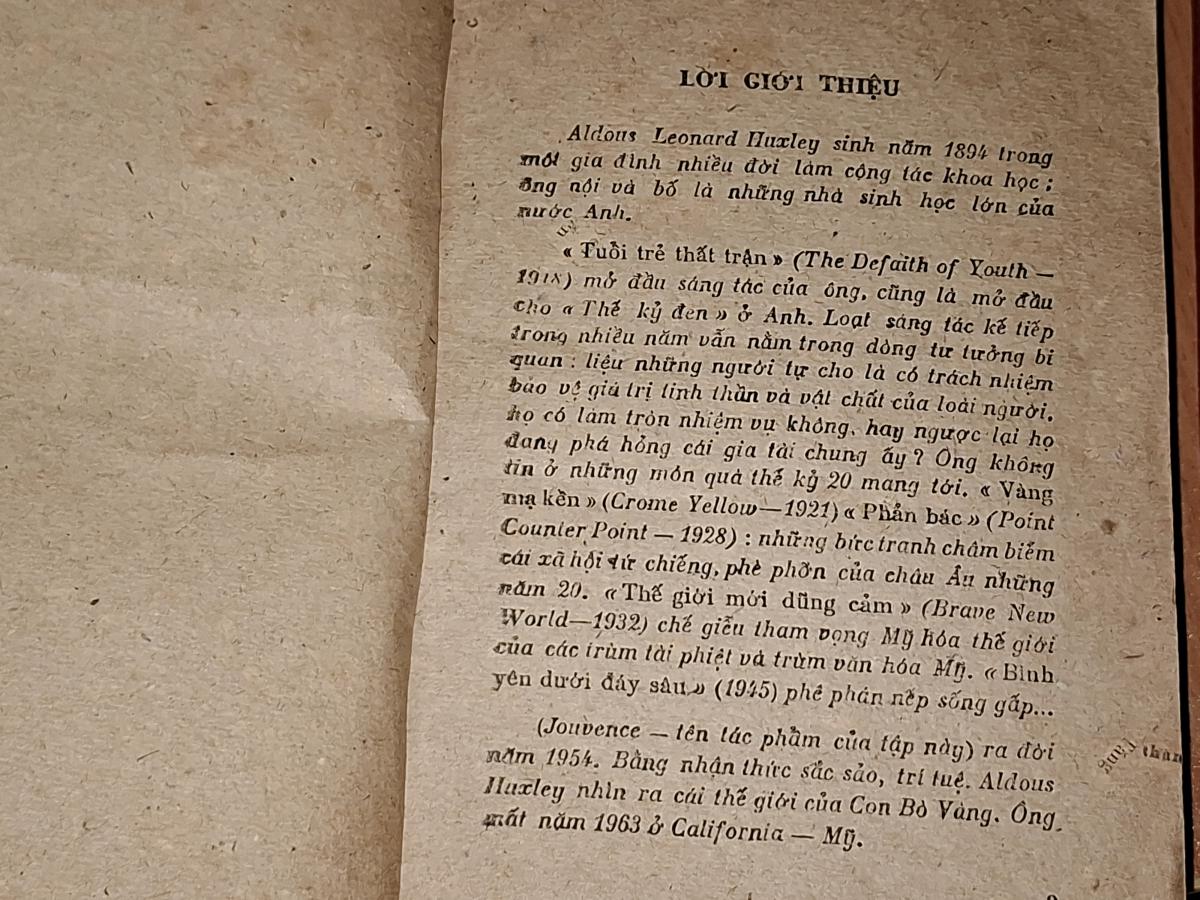 LỜI GIỚI THIỆU
Aldous Leonard Huxley sinh năm 1894 trong
một gia đình nhiều đời làm công tác khoa học ;
ông nội và bố là những nhà sinh học lớn của
nước Anh.
« Tuổi trẻ thất trận » (The Defaith of Youth —
1918) mở đầu sáng tác của ông, cũng là mở đầu
cho « Thế kỷ đen » ở Anh. Loạt sáng tác kế tiếp
trong nhiều năm vẫn nằm trong dòng tư tưởng bi
quan : liệu những người tự cho là có trách nhiệm
bảo vệ giá trị tinh thần và vật chất của loài người,
họ có làm tròn nhiệm vụ không, hay ngược lại họ
đang phá hỏng cái gia tài chung ấy ? Ông không
tin ở những món quà thế kỷ 20 mang tới. « Vàng
mạ kền » (Crome Yellow—1921) « Phản bác » (Point
Counter Point — 1928) : những bức tranh châm biếm
cái xã hội tứ chiếng, phè phỡn của châu Âu những
năm 20. « Thế giới mới dũng cảm » (Brave New
World—1932) chế giễu tham vọng Mỹ hóa thế giới
của các trùm tài phiệt và trùm văn hóa Mỹ. « Bình
yên dưới đáy sâu » (1945) phê phán nếp sống gấp...
(Jouvence — tên tác phẩm của tập này) ra đời
năm 1954. Bằng nhận thức sắc sảo, trí tuệ. Aldous
Huxley nhìn ra cái thế giới của Con Bò Vàng. Ông
mất năm 1963 ở California — Mỹ.